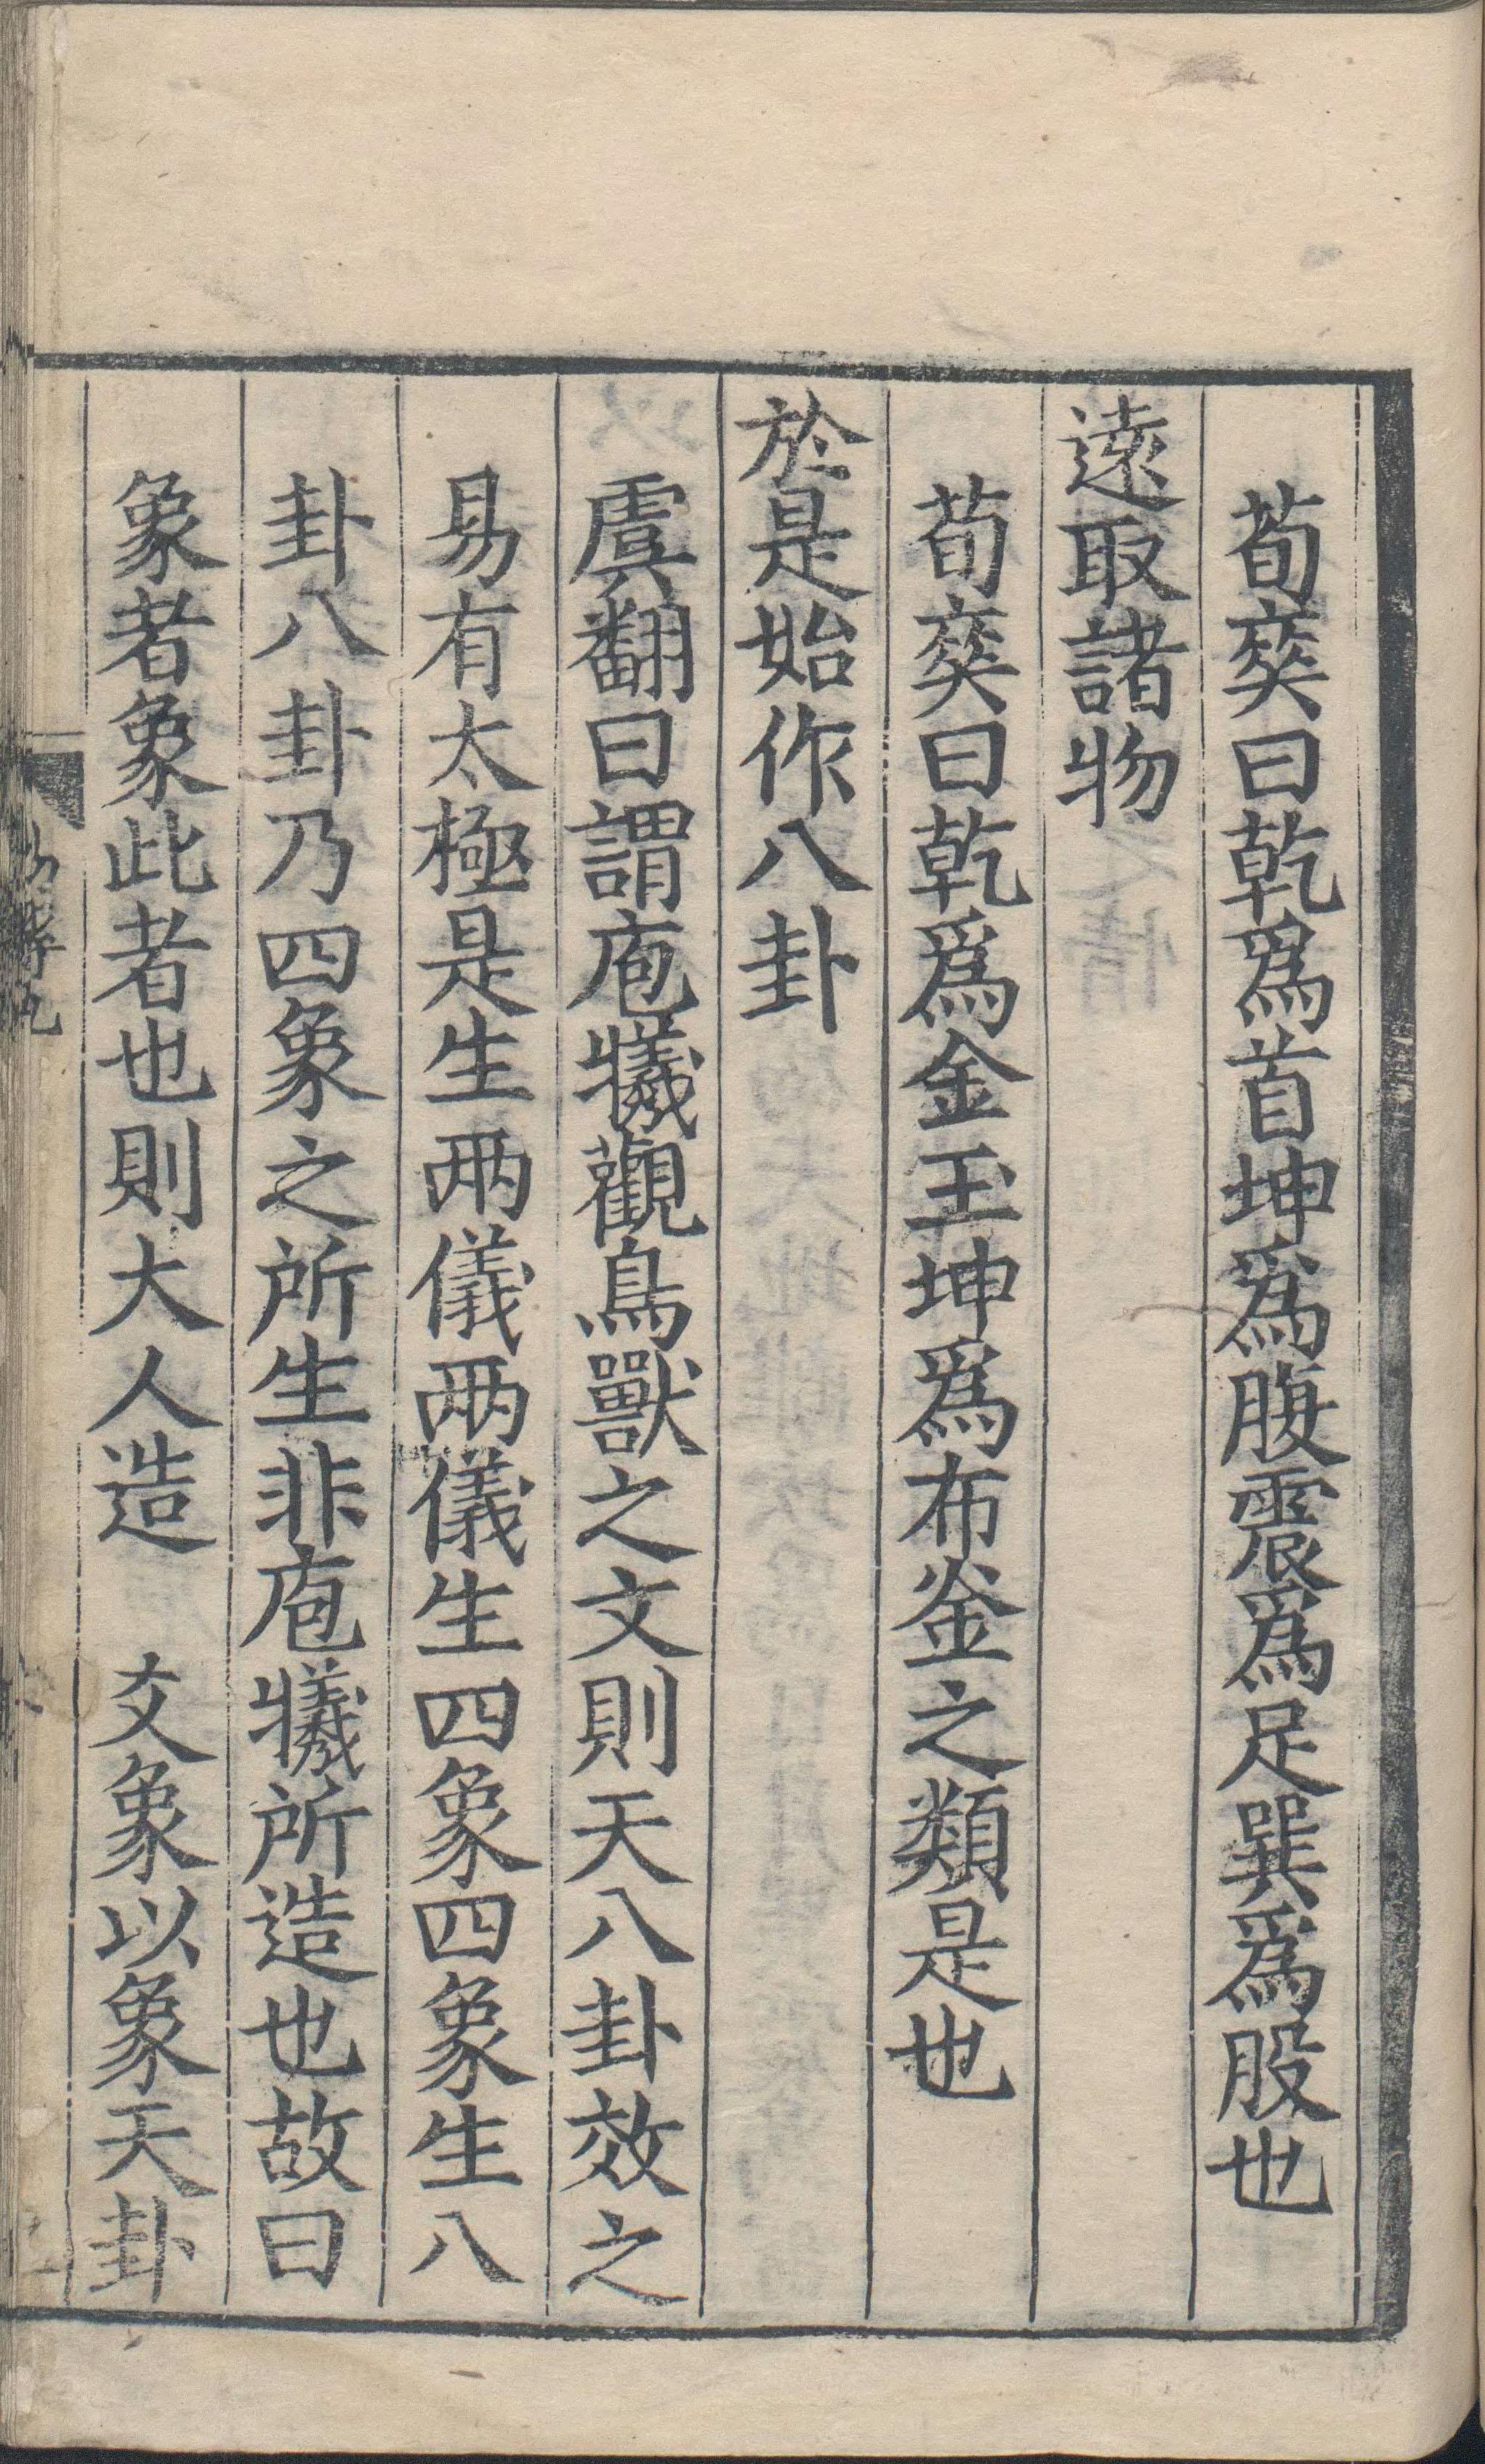 荀爽曰乾爲首坤爲腹震爲足巽爲股也
遠取諸物
荀爽曰乾爲金玉坤爲布釜之類是也
於是始作八卦
虞翻曰謂庖犧觀鳥獸之文則天八卦效之
易有太極是生兩儀兩儀生四象四象生八
卦八卦乃四象之所生非庖犧所造也故曰
象者象此者也則大人造　爻象以象天卦